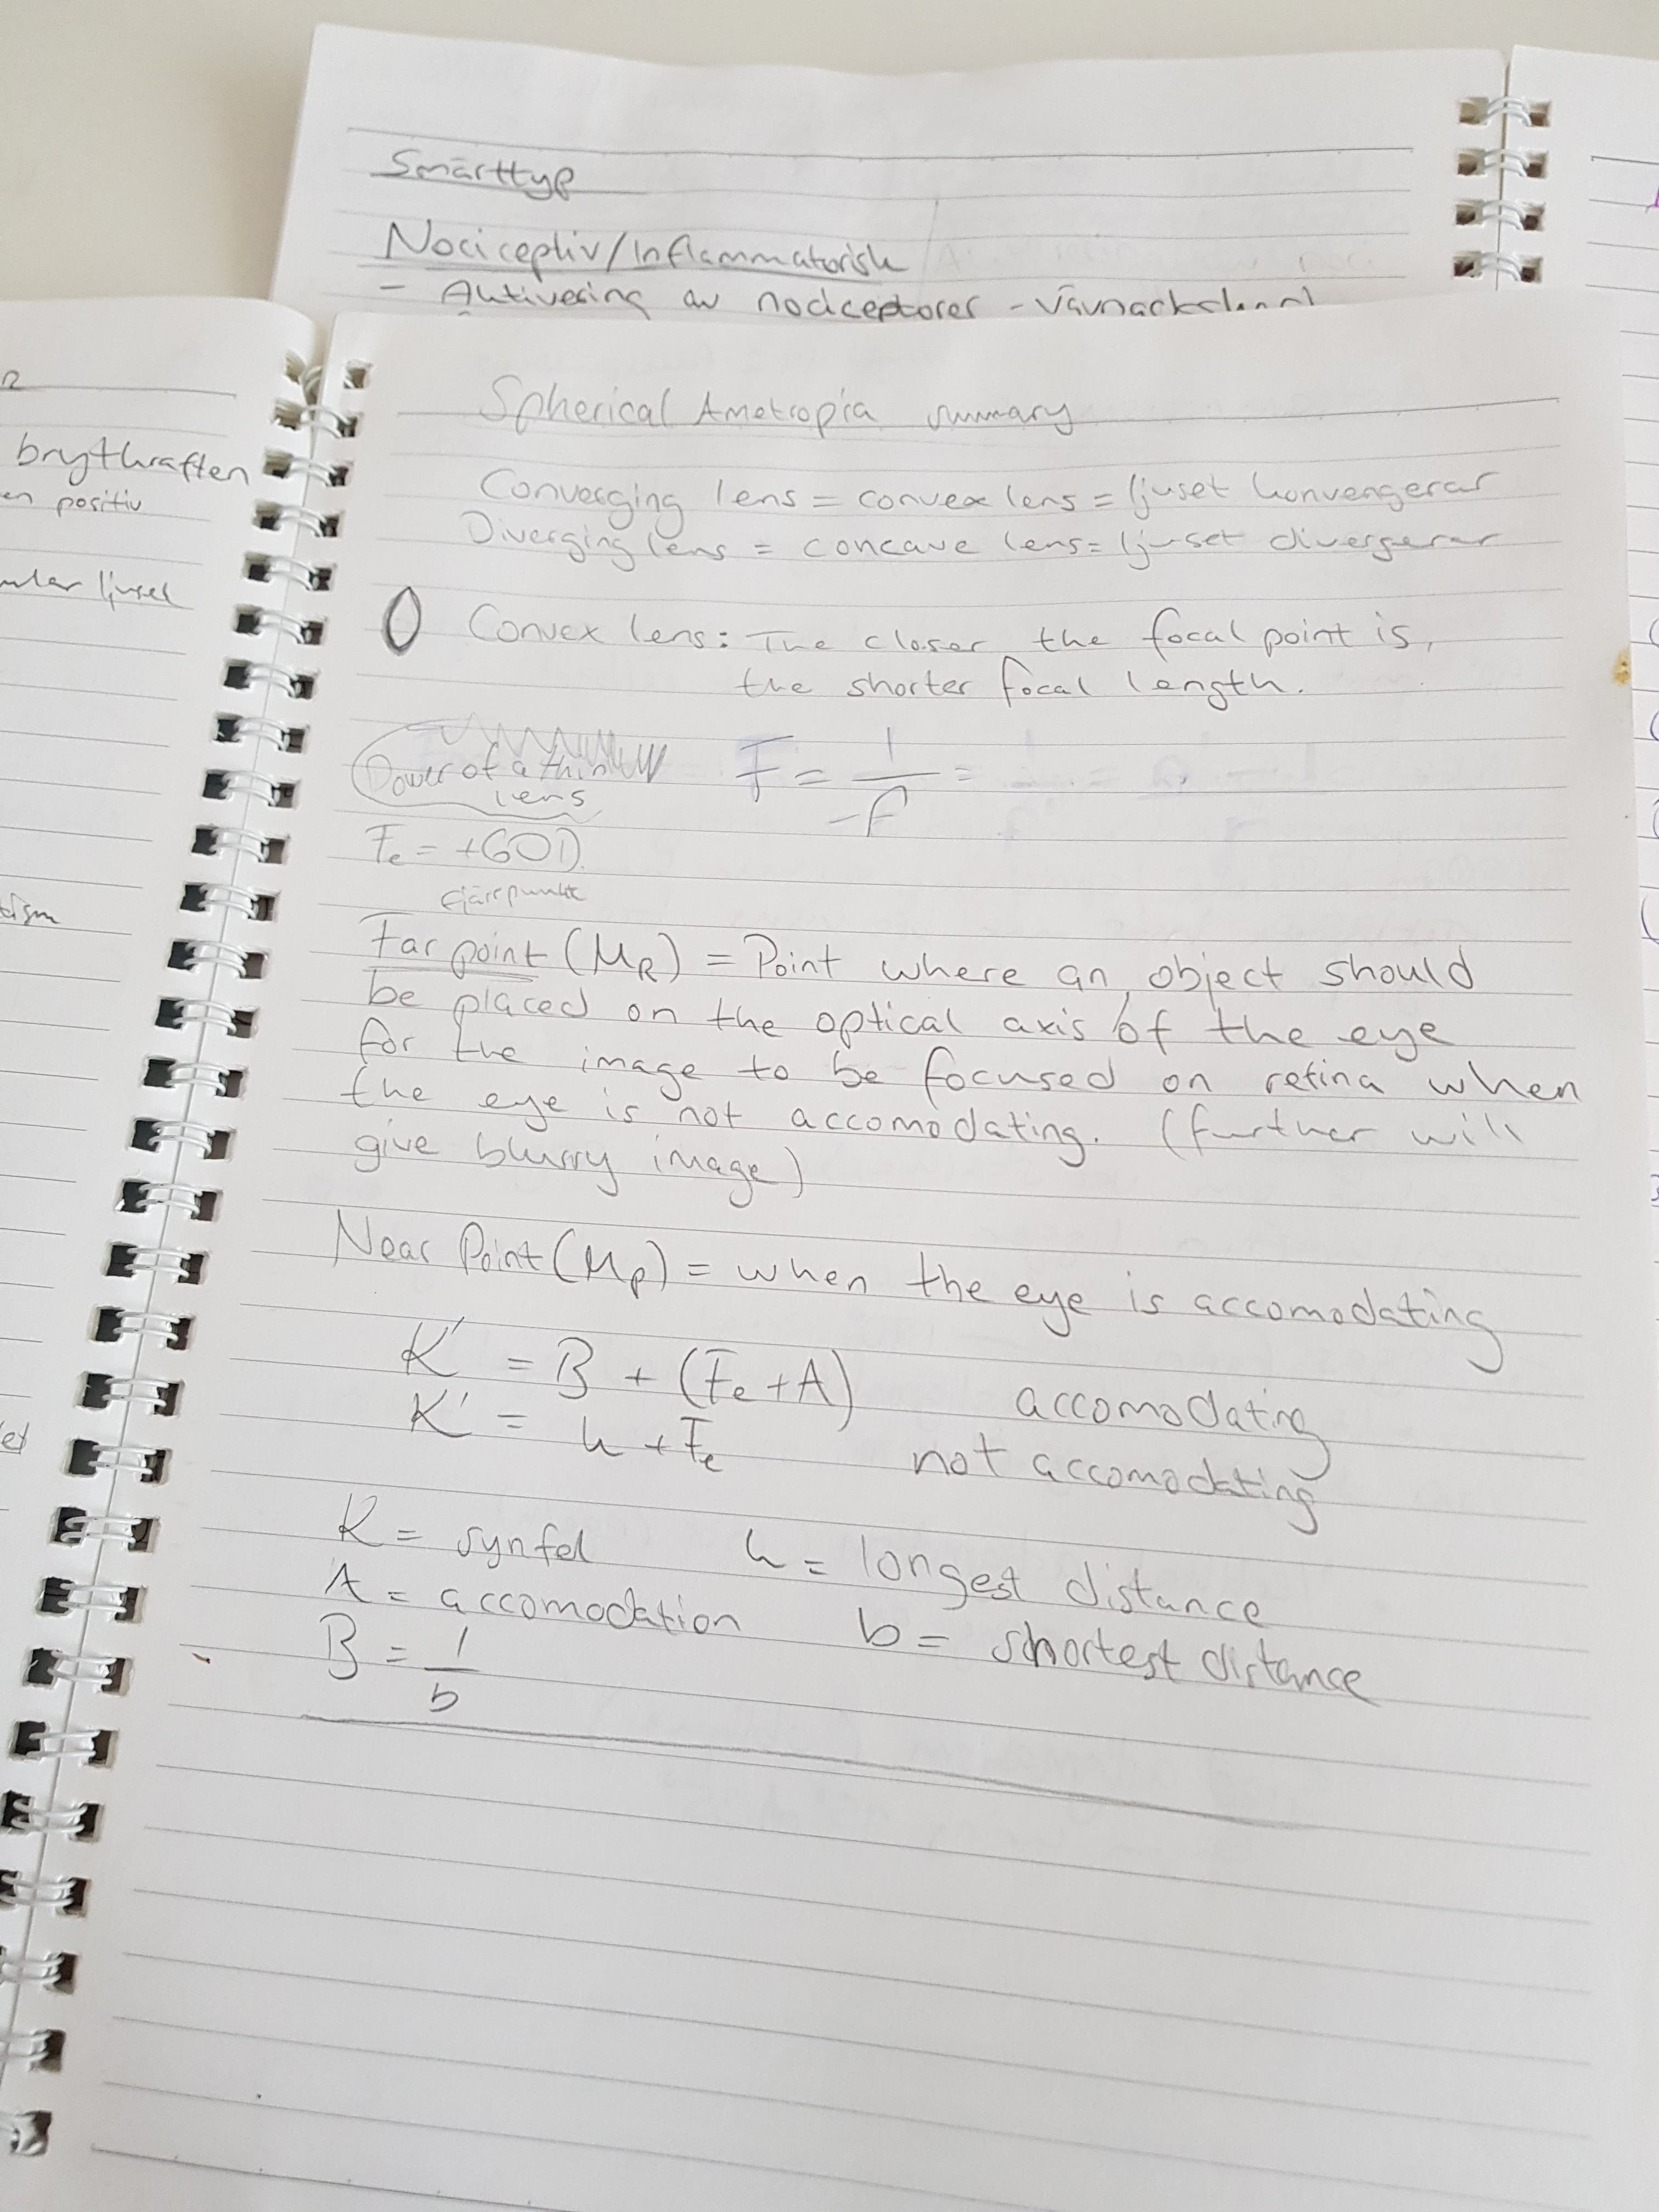 Smärttyp
Nociceptiv/Inflammatorisk
- Aktivering av nociceptorer -
brytkraften
en positiv
Spherical Ametropia summary
Converging lens = convex lens = ljuset konvengerar
Diverging lens = concave lens = ljuset divergerar
Convex lens: The closer the focal point is,
the shorter focal length.
Power of a thin
lens
F = 1/-f =
Fe = +60D.
fjärrpunkt
Far point (MR) = Point where an object should
be placed on the optical axis of the eye
for the image to be focused on retina when
the eye is not accomodating. (further will
give blurry image)
Near Point (Mp) = when the eye is accomodating
K' = B + (Fe + A) accomodating
K' = k + Fe not accomodating
K = synfel k = longest distance
A = accomodation b = shortest distance
B = 1/b